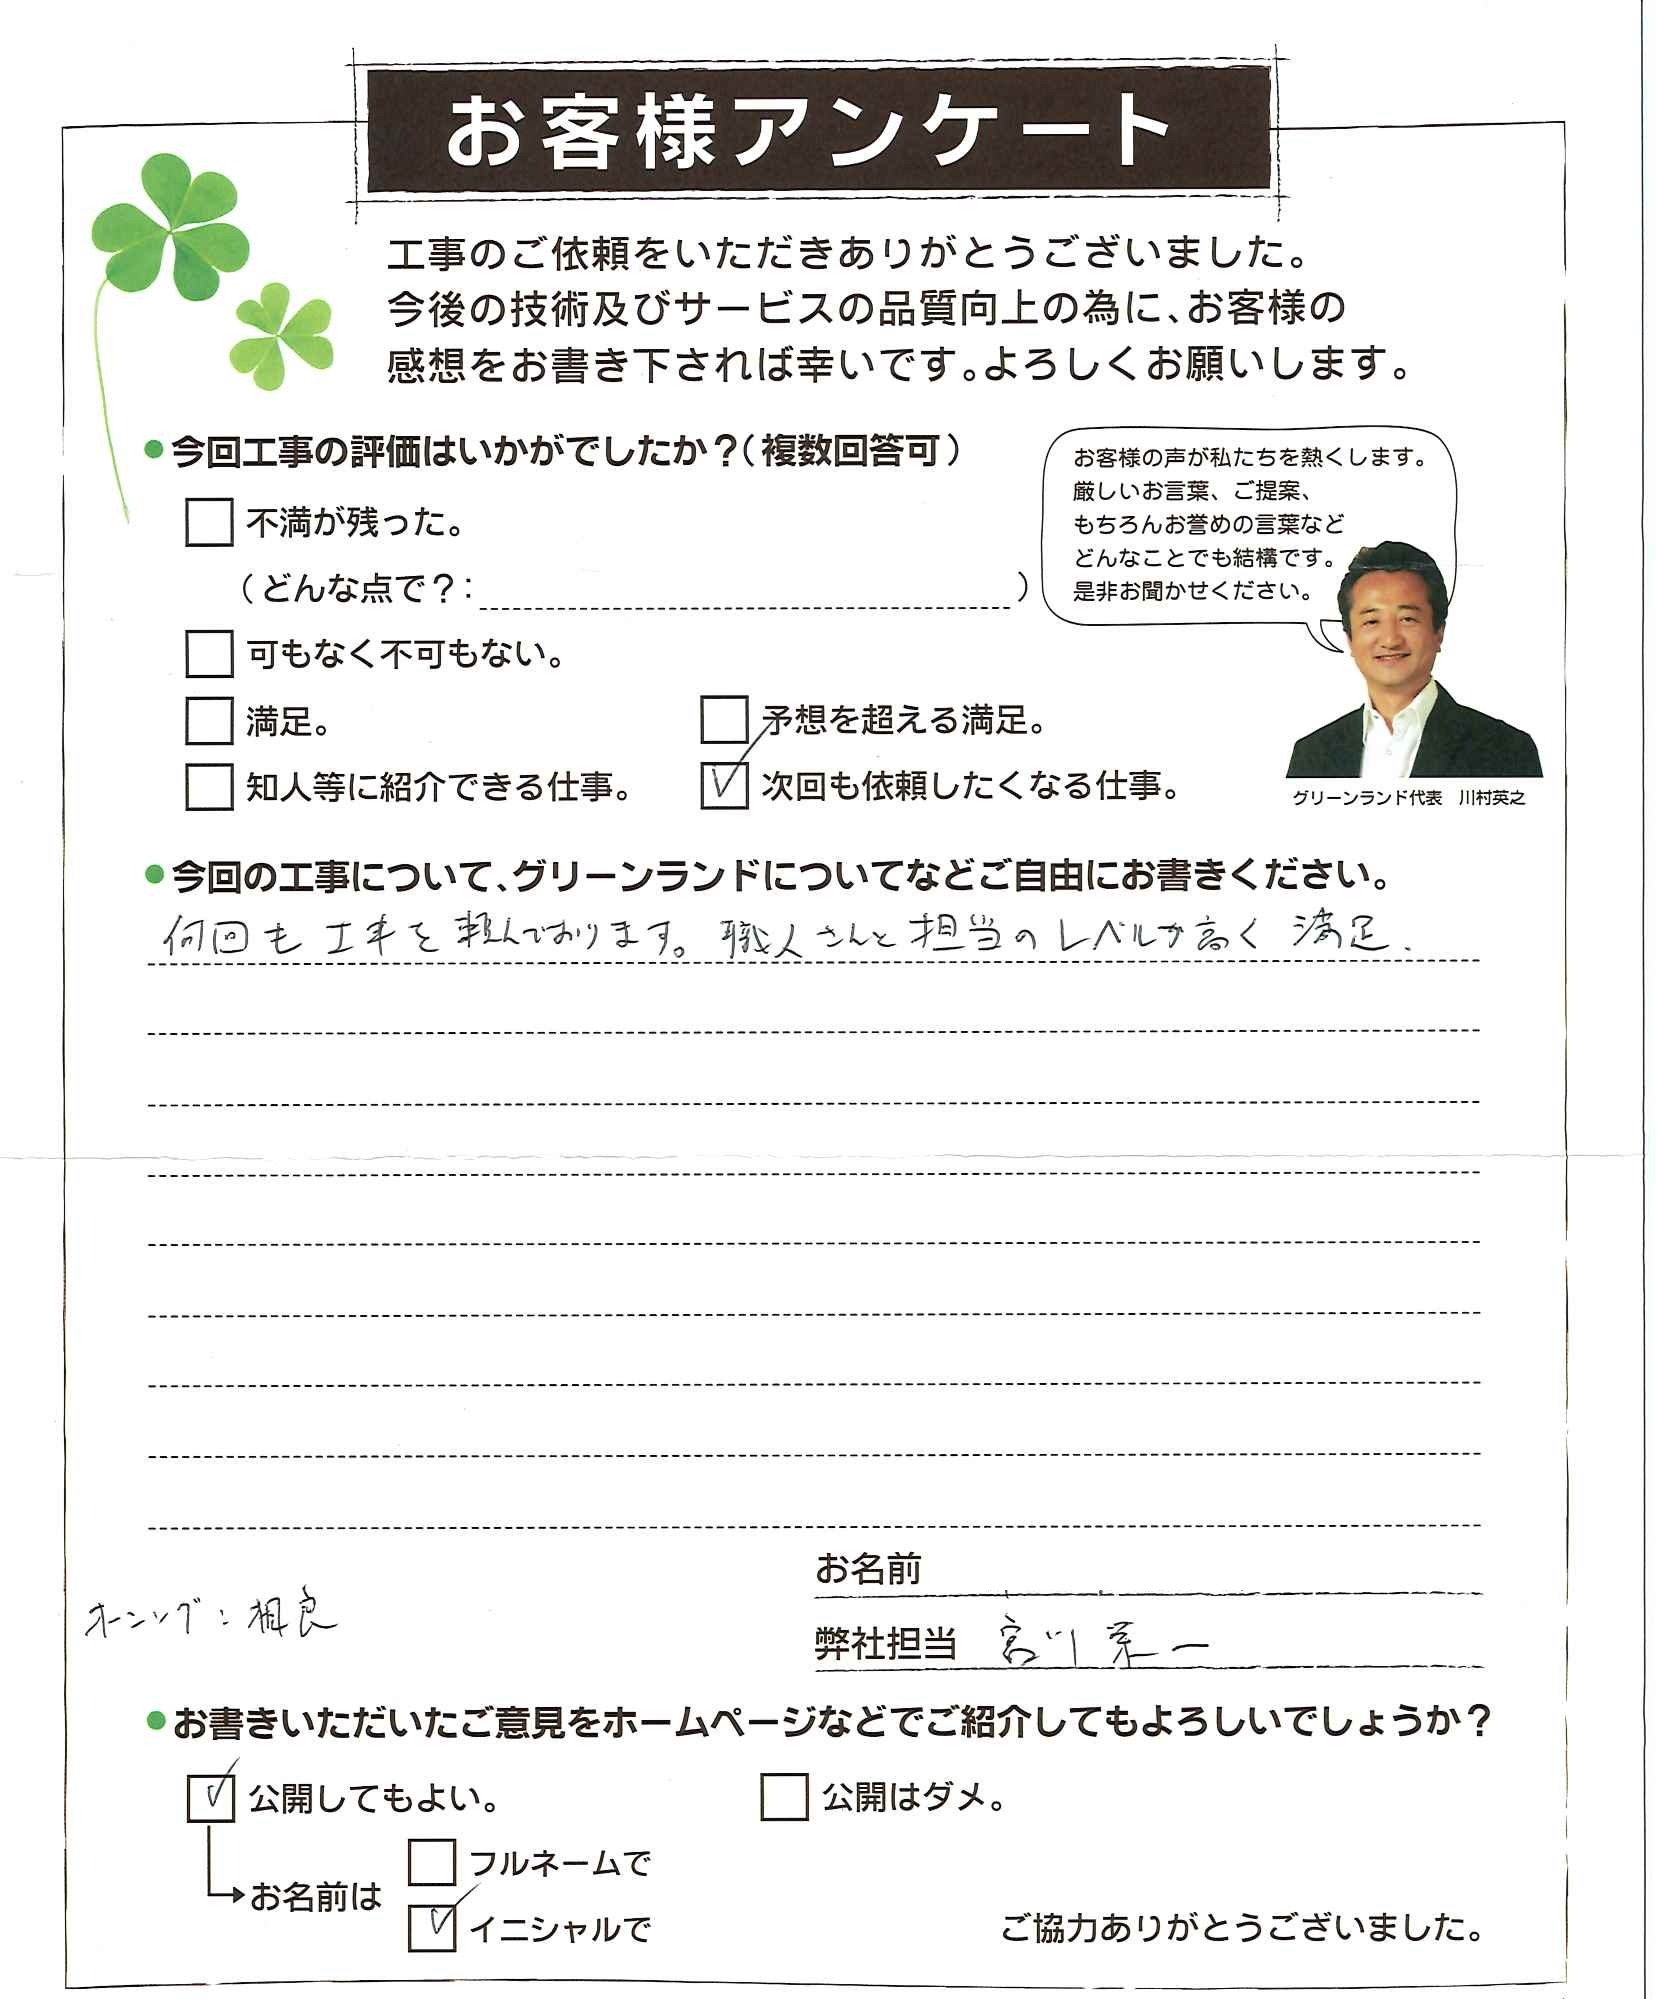 お客様アンケート
工事のご依頼をいただきありがとうございました。
今後の技術及びサービスの品質向上の為に、お客様の
感想をお書き下されば幸いです。よろしくお願いします。
●今回工事の評価はいかがでしたか？（複数回答可）
不満が残った。
（どんな点で？：　）
可もなく不可もない。
満足。
予想を超える満足。
知人等に紹介できる仕事。
次回も依頼したくなる仕事。
お客様の声が私たちを熱くします。
厳しいお言葉、ご提案、
もちろんお誉めの言葉など
どんなことでも結構です。
是非お聞かせください。
グリーンランド代表　川村英之
●今回の工事について、グリーンランドについてなどご自由にお書きください。
何回も工事を頼んでおります。職人さんと担当のレベルが高く満足.
お名前
オーニング：相良
弊社担当　宮川栄一
●お書きいただいたご意見をホームページなどでご紹介してもよろしいでしょうか？
公開してもよい。
公開はダメ。
お名前は
フルネームで
イニシャルで
ご協力ありがとうございました。